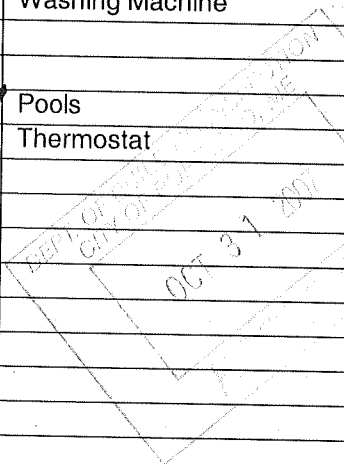 Washing Machine
Pools
Thermostat
DEPT. OF
CITY OF
OCT 31 2007